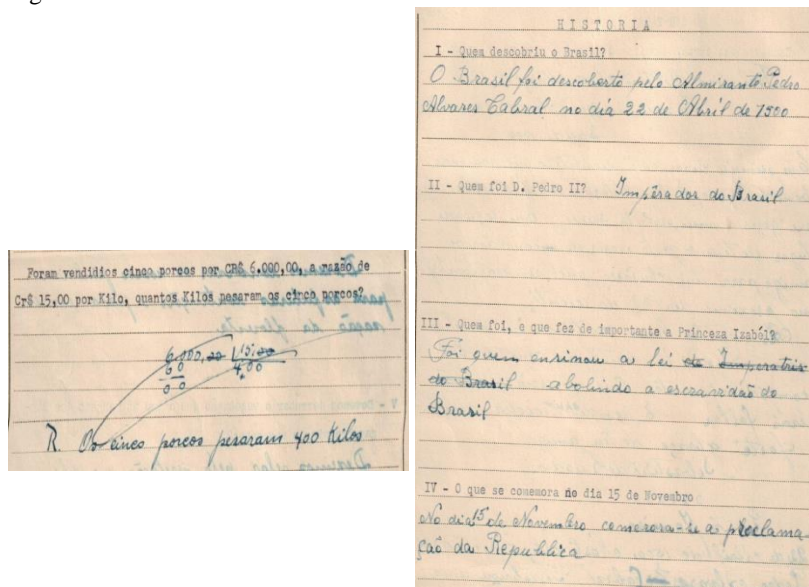 Foram vendidios cinco porcos por CR$ 6.000,00, a razão de
Cr$ 15,00 por Kilo, quantos Kilos pesaram os cinco porcos?
6.000,00 15,00
60 400
00
R. Os cinco porcos pesaram 400 Kilos
HISTORIA
I - Quem descobriu o Brasil?
O Brasil foi descoberto pelo Almirante Pedro
Alvares Cabral no dia 22 de Abril de 1500
II - Quem foi D. Pedro II? Impêrador do Brasil
III - Quem foi, e que fez de importante a Princeza Izabél?
Foi quem ensinou a lei da Imperatriz
do Brasil abolindo a escravidão do
Brasil
IV - O que se comemora no dia 15 de Novembro
No dia 15 de Novembro comemora-se a proclama-
ção da Republica